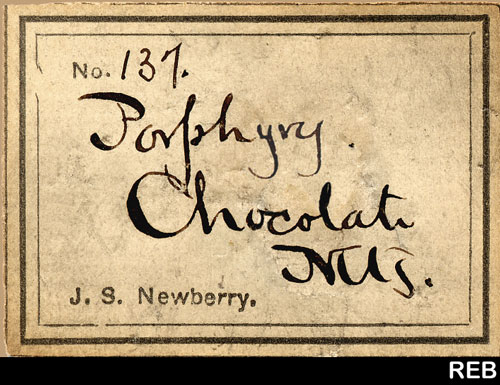 No. 137.
Porphyry.
Chocolate
Mts.
J. S. Newberry.
REB